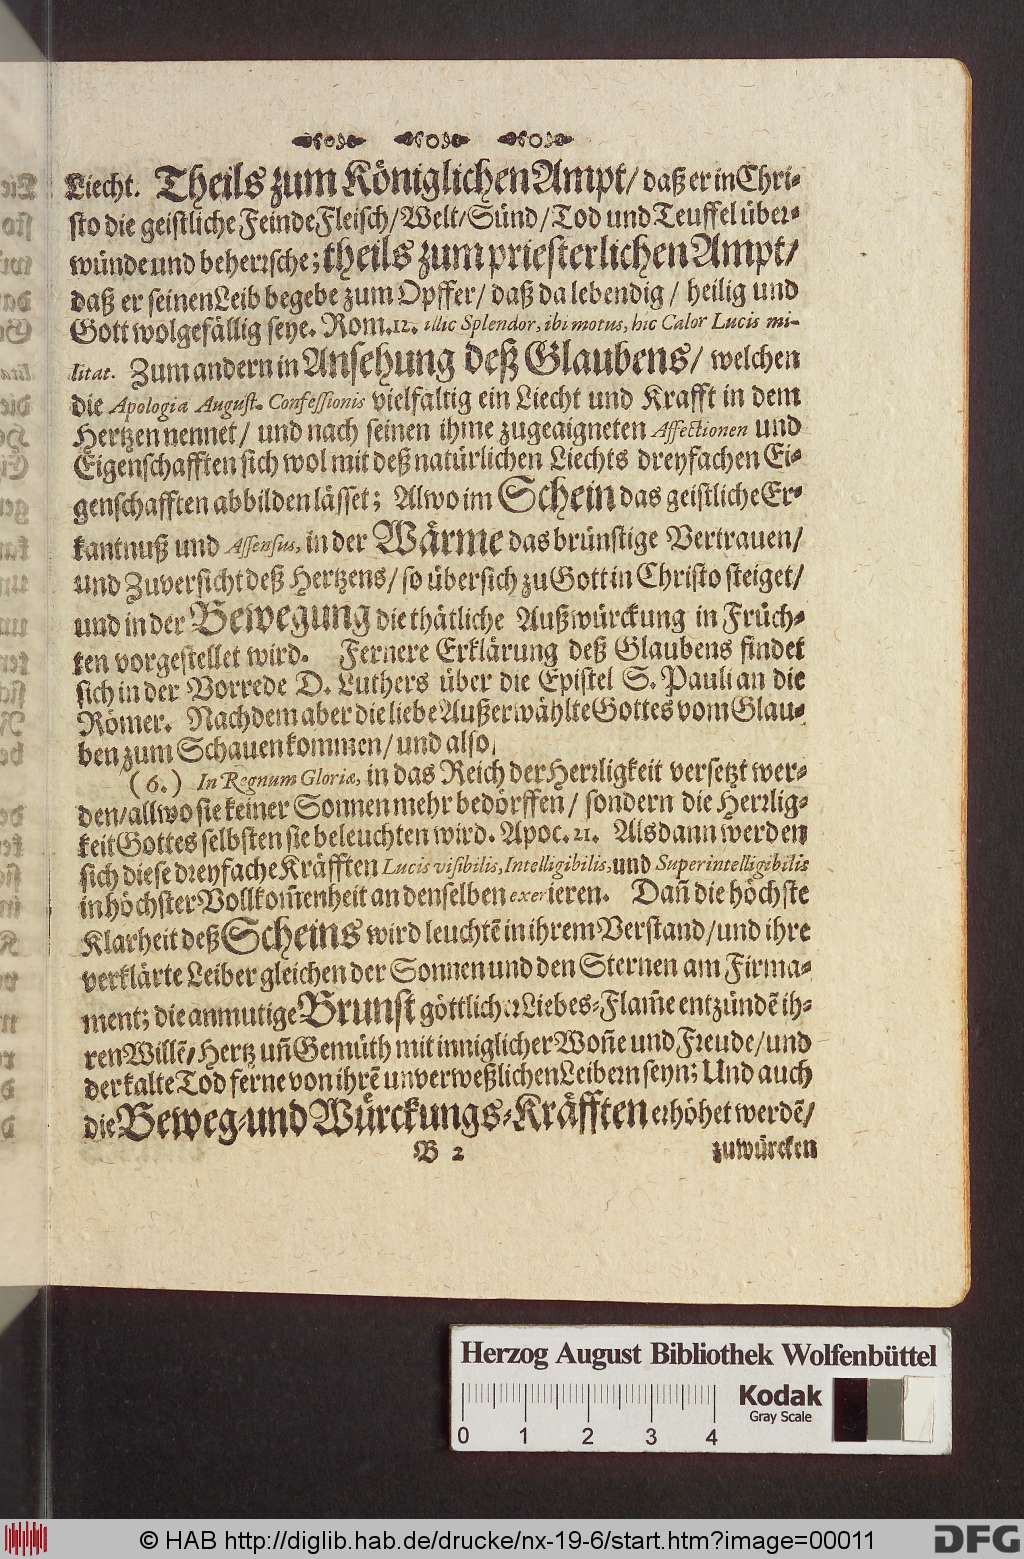 Liecht. Theils zum Königlichen Ampt/ daß er in Chri-
sto die geistliche Feinde Fleisch/ Welt/ Sünd/ Tod und Teuffel über-
wünde und beherrsche; theils zum priesterlichen Ampt/
daß er seinen Leib begebe zum Opffer/ daß da lebendig/ heilig und
Gott wolgefällig seye. Rom. 12. illic Splendor, ibi motus, hic Calor Lucis mi-
litat. Zum andern in Ansehung deß Glaubens/ welchen
die Apologia August. Confessionis vielfältig ein Liecht und Krafft in dem
Hertzen nennet/ und nach seinen ihme zugeaigneten Affectionen und
Eigenschafften sich wol mit deß natürlichen Liechts dreyfachen Ei-
genschafften abbilden lässet; Alwo im Schein das geistliche Er-
kantnuß und Assensus, in der Wärme das brünstige Vertrauen/
und Zuversicht deß Hertzens/ so übersich zu Gott in Christo steiget/
und in der Bewegung die thätliche Außwürckung in Früch-
ten vorgestellet wird. Fernere Erklärung deß Glaubens findet
sich in der Vorrede D. Luthers über die Epistel S. Pauli an die
Römer. Nachdem aber die liebe Außerwählte Gottes vom Glau-
ben zum Schauen kommen/ und also,
(6.) In Regnum Gloriæ, in das Reich der Herrligkeit versetzt wer-
den/ allwo sie keiner Sonnen mehr bedörffen/ sondern die Herrlig-
keit Gottes selbsten sie beleuchten wird. Apoc. 21. Alsdann werden
sich diese dreyfache Kräfften Lucis visibilis, Intelligibilis, und Superintelligibilis
in höchster Vollkom̃enheit an denselben exerieren. Dañ die höchste
Klarheit deß Scheins wird leuchtẽ in ihrem Verstand/ und ihre
verklärte Leiber gleichen der Sonnen und den Sternen am Firma-
ment; die anmutige Brunst göttlicher Liebes-Flam̃e entzündẽ ih-
ren Willẽ/ Hertz uñ Gemüth mit inniglicher Woñe und Freude/ und
der kalte Tod ferne von ihrẽ unverweßlichen Leibern seyn; Und auch
die Beweg- und Würckungs-Kräfften erhöhet werdẽ/
B 2 zuwürcken
Herzog August Bibliothek Wolfenbüttel
0 1 2 3 4
Kodak
Gray Scale
© HAB http://diglib.hab.de/drucke/nx-19-6/start.htm?image=00011
DFG